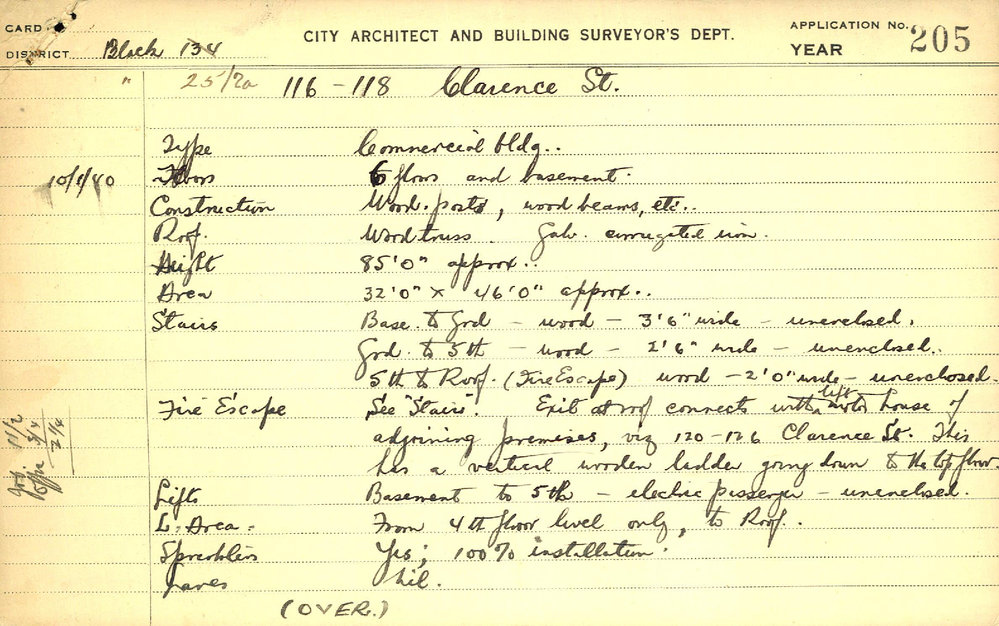 CARD
CITY ARCHITECT AND BUILDING SURVEYOR'S DEPT.
APPLICATION No. 205
DISTRICT Block 134
YEAR
" 25/7a 116 - 118 Clarence St.
Type Commercial bldg..
10/1/40 Floors 6 floors and basement.
Construction Wood posts, wood beams, etc..
Roof. Wood truss. Galv. corrugated iron.
Height 85'0" approx..
Area 32'0" x 46'0" approx..
Stairs Base. to Grd - wood - 3'6" wide - unenclosed.
Grd. to 5th - wood - 2'6" wide - unenclosed.
5th to Roof. (Fire Escape) wood - 2'0" wide - unenclosed.
Fire Escape See "Stairs". Exit at roof connects with lift motor house of
adjoining premises, viz 120-126 Clarence St. This
has a vertical wooden ladder going down to the top floor.
Lifts Basement to 5th - electric passenger - unenclosed.
L. Area. From 4th floor level only, to Roof.
Sprinklers Yes; 100% installation.
Nil.
(OVER.)